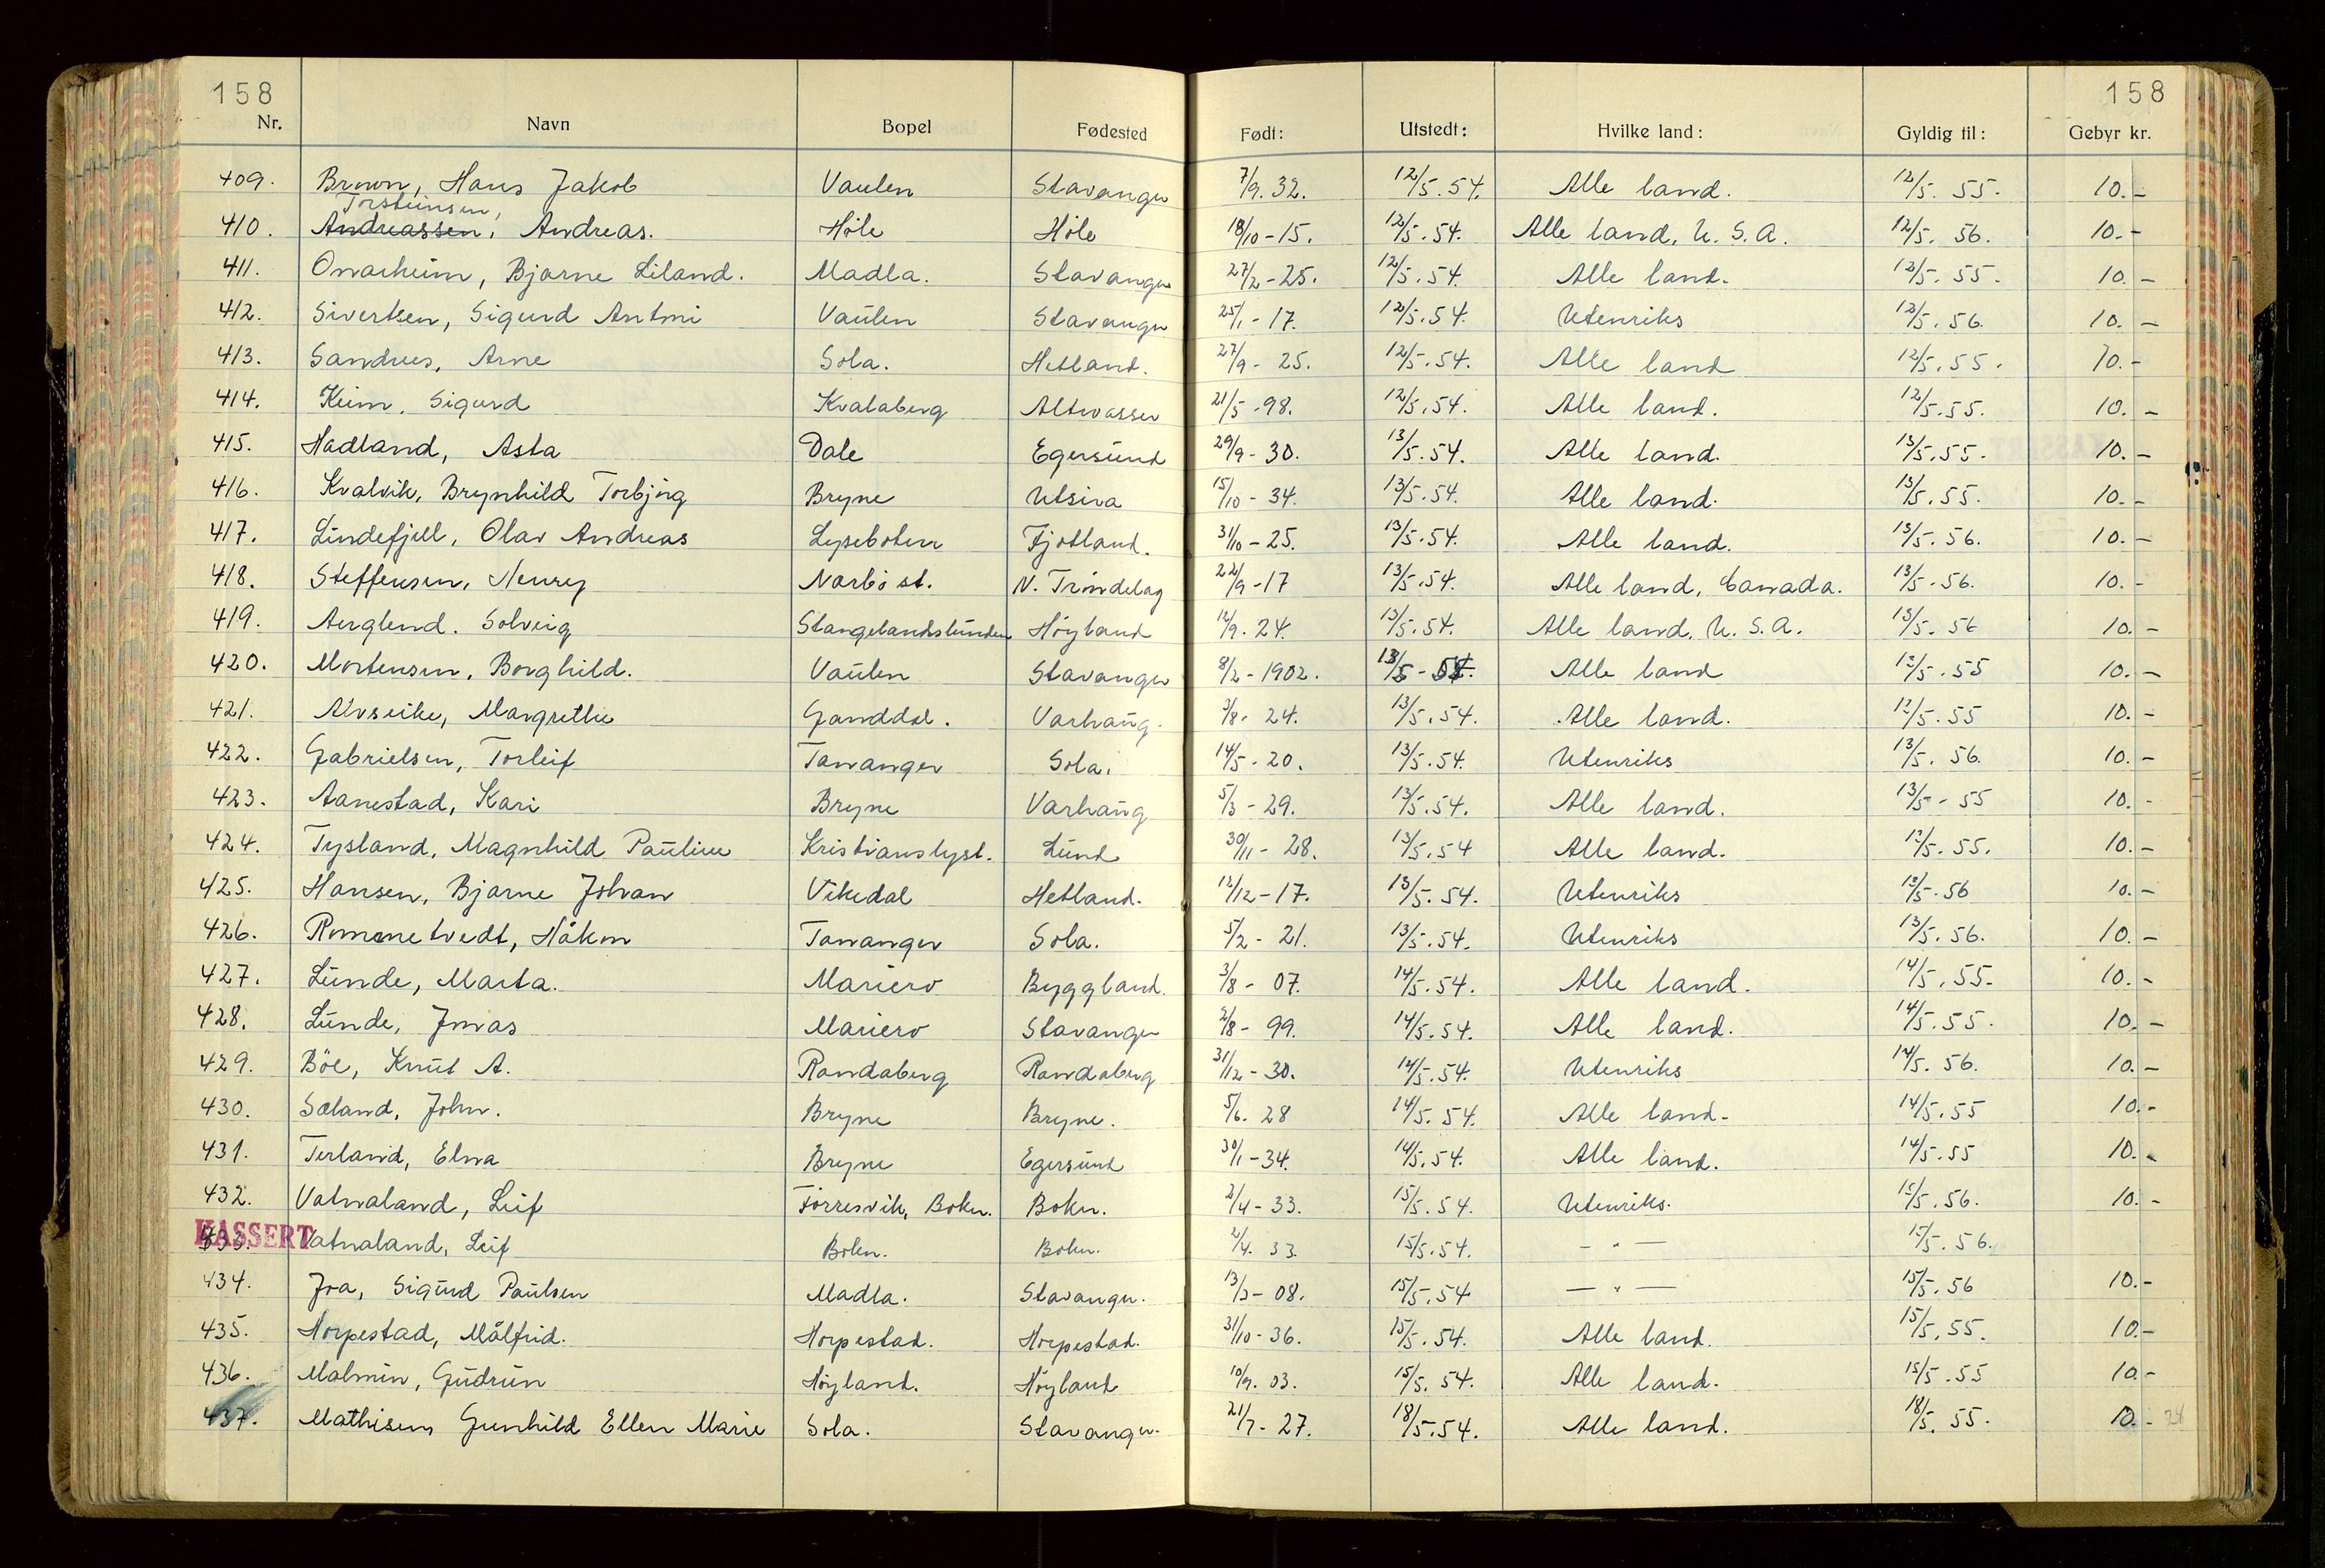 158 158
Nr. Navn Bopel Fødested Født: Utstedt: Hvilke land: Gyldig til: Gebyr kr.
409. Brown, Hans Jakob Vaulen Stavanger 7/9. 32. 12/5. 54. Alle land. 12/5. 55. 10.-
Torsteinsen,
410. Andreassen, Andreas. Høle Høle 18/10-15. 12/5. 54. Alle land, U. S. A. 12/5. 56. 10.-
411. Onarheim, Bjarne Liland. Madla. Stavanger 27/2-25. 12/5. 54. Alle land. 12/5. 55. 10.-
412. Sivertsen, Sigurd Antoni Vaulen Stavanger 25/1-17. 12/5. 54. Utenriks 12/5. 56. 10.-
413. Sandnes, Arne Sola. Hetland. 27/9-25. 12/5. 54. Alle land 12/5. 55. 10.-
414. Keim, Sigurd Kvalaberg Altwasser 21/5-98. 12/5. 54. Alle land. 12/5. 55. 10.-
415. Hadland, Asta Dale Egersund 29/9-30. 13/5. 54. Alle land. 13/5. 55. 10.-
416. Kvalvik, Brynhild Torbjørg Bryne Utsira 15/10-34. 13/5. 54. Alle land. 13/5. 55. 10.-
417. Lindefjell, Olav Andreas Lysebotn Fjotland. 31/10-25. 13/5. 54. Alle land. 13/5. 56. 10.-
418. Steffensen, Henry Nærbø st. N. Trøndelag 22/9-17 13/5. 54. Alle land, Canada. 13/5. 56. 10.-
419. Solveig Stangelandslunden Høyland 12/9. 24. 13/5. 54. Alle land, U. S. A. 13/5. 56 10.-
420. Mortensen, Borghild. Vaulen Stavanger 8/2-1902. 13/5-54. Alle land 13/5. 55 10.-
421. Alvseike, Margrethe Ganddal. Varhaug. 3/8-24. 13/5. 54. Alle land. 13/5. 55 10.-
422. Gabrielsen, Torleif Tananger Sola. 14/5-20. 13/5. 54. Utenriks 13/5. 56. 10.-
423. Aanestad, Kari Bryne Varhaug 5/3-29. 13/5. 54. Alle land. 13/5-55 10.-
424. Tysland, Magnhild Pauline Kristianslyst. Lund 30/11-28. 13/5. 54 Alle land. 13/5. 55. 10.-
425. Hansen, Bjarne Johan Vikedal Hetland. 12/12-17. 13/5. 54. Utenriks 13/5. 56 10.-
426. Rommetvedt, Håkon Tananger Sola. 5/2-21. 13/5. 54. Utenriks 13/5. 56. 10.-
427. Lunde, Marta. Mariero Byggland. 3/8-07. 14/5. 54. Alle land. 14/5. 55. 10.-
428. Lunde, Jonas Mariero Stavanger 2/8-99. 14/5. 54. Alle land. 14/5. 55. 10.-
429. Böe, Knut A. Randaberg Randaberg 31/12-30. 14/5. 54. Utenriks 14/5. 56. 10.-
430. Sæland, John. Bryne Bryne. 5/6. 28 14/5. 54. Alle land. 14/5. 55 10.-
431. Terland, Elna Bryne Egersund 30/1-34. 14/5. 54. Alle land. 14/5. 55 10.-
432. Vatnaland, Leif Førresvik, Bokn. Bokn. 2/4-33. 15/5. 54. Utenriks. 15/5. 56. 10.-
KASSERT
433. Vatnaland, Leif Bokn. Bokn. 2/4. 33. 15/5. 54. - " - 15/5. 56.
434. Joa, Sigurd Paulsen Madla. Stavanger. 13/3-08. 15/5. 54 - " - 15/5. 56 10.-
435. Horpestad, Målfrid. Horpestad. Horpestad. 31/10-36. 15/5. 54. Alle land. 15/5. 55. 10.-
436. Malmin, Gudrun Høyland. Høyland 10/9. 03. 15/5. 54. Alle land. 15/5. 55 10.-
437. Mathisen, Gunhild Ellen Marie Sola. Stavanger. 21/7-27. 18/5. 54. Alle land. 18/5. 55. 10.-